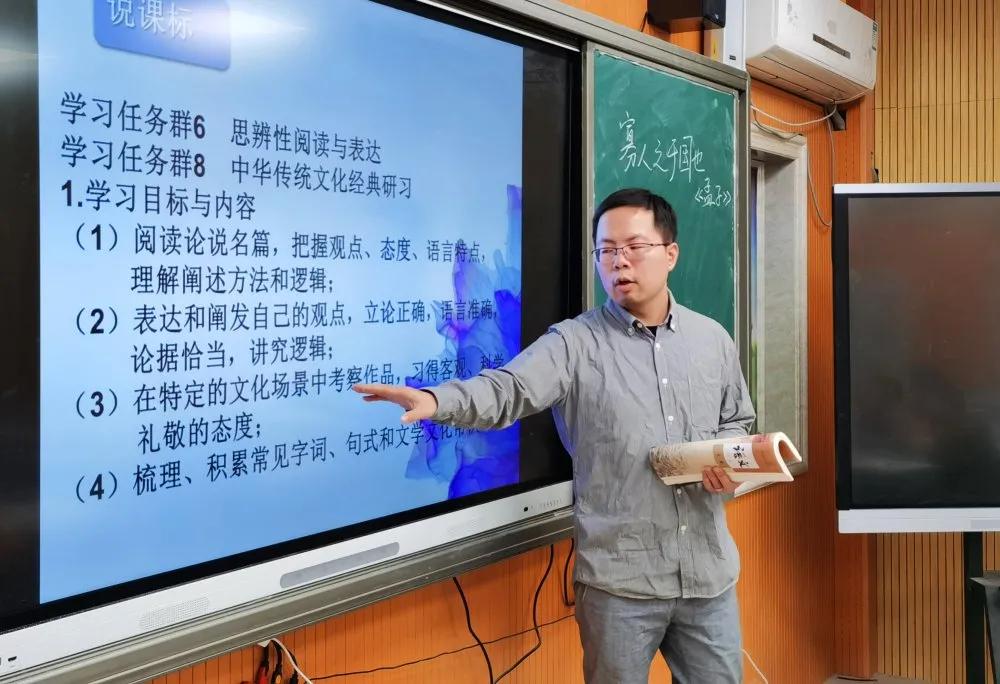 说课标
学习任务群6 思辨性阅读与表达
学习任务群8 中华传统文化经典研习
1.学习目标与内容
（1）阅读论说名篇，把握观点、态度、语言特点，
理解阐述方法和逻辑；
（2）表达和阐发自己的观点，立论正确，语言准确，
论据恰当，讲究逻辑；
（3）在特定的文化场景中考察作品，习得客观、科学
礼敬的态度；
（4）梳理、积累常见字词、句式和文学文化常识
寡人之于国也
《孟子》